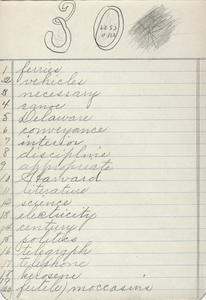 3
1 ferries
2 vehicles
3 necessary
4 canoe
5 Delaware
6 conveyance
7 interior
8 discipline
9 appropriate
10 Harvard
11 literature
12 science
13 electricity
14 century
15 politics
16 telegraph
17 telephone
18 kerosene
fertile moccasins